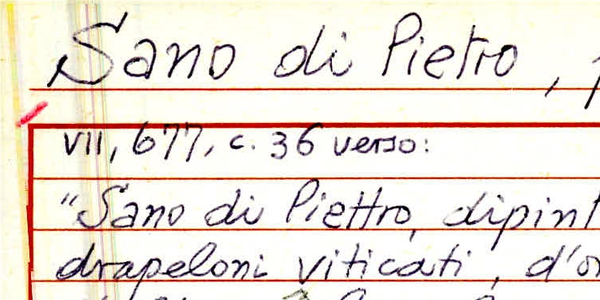 Sano di Pietro,
VII, 677, c. 36 verso:
"Sano di Piettro, dipint
drapeloni viticati, d'o